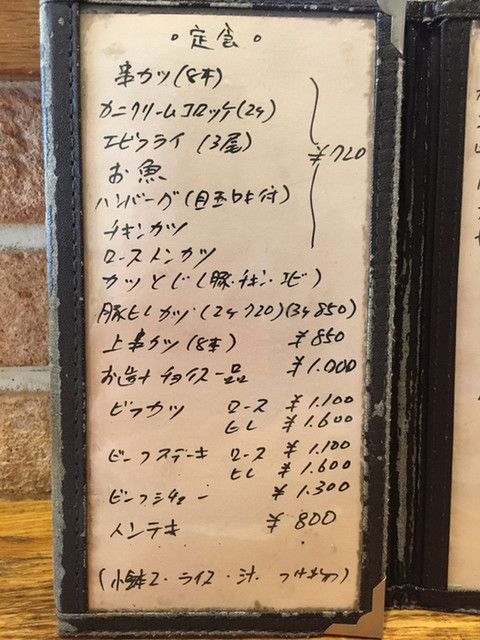 。定食。
串カツ(8本)
カニクリームコロッケ(2ケ)
エビフライ(3尾)
¥720
お魚
ハンバーグ(目玉付)
チキンカツ
ローストンカツ
カツとじ(豚・チキン・エビ)
豚ヒレカツ(2ケ720)(3ケ850)
上串カツ(8本) ¥850
チョイス一品 ¥1.000
ビフカツ ロース ¥1.100
ヒレ ¥1.600
ビーフステーキ ロース ¥1.100
ヒレ ¥1.600
ビーフシチュー ¥1.300
トンテキ ¥800
(小鉢2・ライス・汁 つけもの)